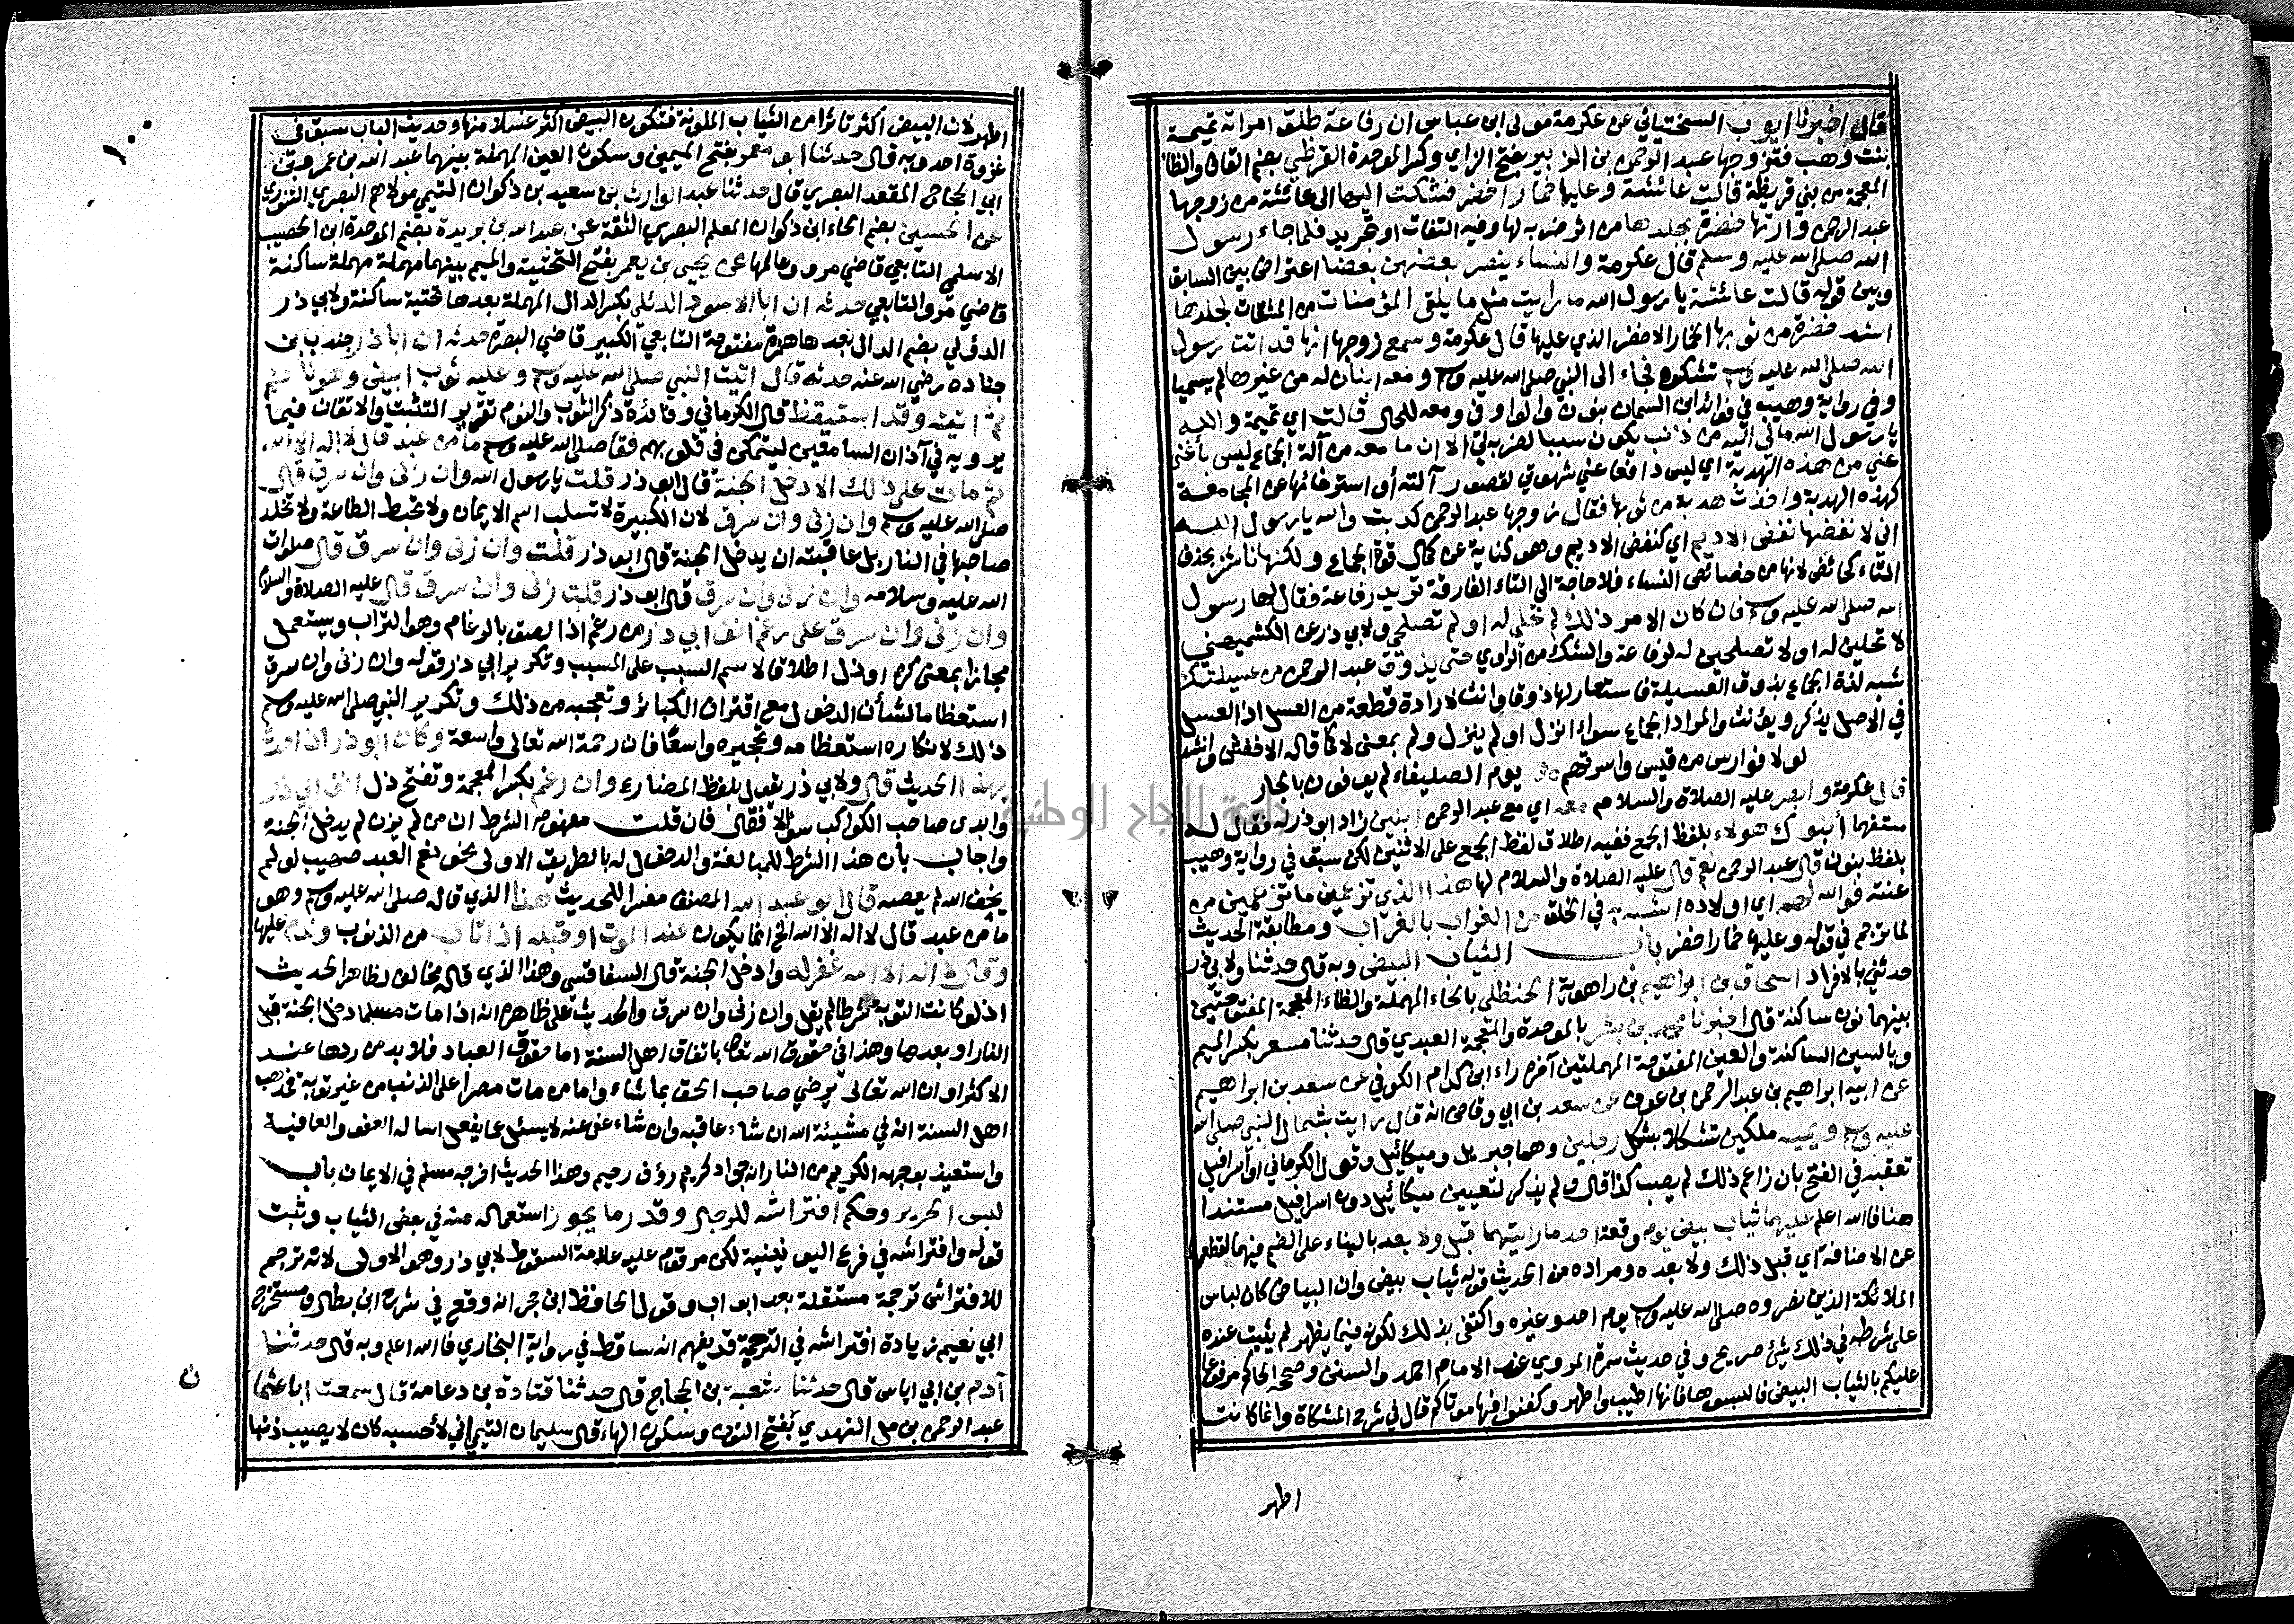 قال اخبرنا ايوب السختياني عن عكرمة مولى ابن عباس ان رفاعة طلق امراته تميمة
بنت وهب فتزوجها عبد الرحمن بن الزبير بفتح الزاي وكسر الموحدة القرظي بضم القاف والظا
المعجمة من بني قريظة قالت عائشة وعليها خمار اخضر فشكت اليها الى عائشة من زوجها
عبد الرحمن وارتها خضرة بجلدها من اثر ضربه لها وفيه التفات او تجريد فلما جاء رسول
الله صلى الله عليه وسلم قال عكرمة والنساء ينصر بعضهن بعضا اعتراض بين السابق
وبين قوله قالت عائشة يا رسول الله ما رايت مثل ما يلقى المؤمنات من المشقات لجلدها
اشد خضرة من ثوبها الخمار الاخضر الذي عليها قال عكرمة وسمع زوجها انها قد اتت رسول
الله صلى الله عليه وسلم تشكوه فجاء الى النبي صلى الله عليه وسلم ومعه ابنان له من غيرها لم يسميا
وفي رواية وهيب في فوائد ابن السماك بنون والواو في ومعه للحال قالت اي تميمة والله
يا رسول الله مالي اليه من ذنب يكون سببا لضربه لي الا ان ما معه من آلة الجماع ليس بأغنى
عني من هذه الهدبة اي ليس دافعا عني شهوتي لقصور آلته أو استرخائها عن المجامعة
كهذه الهدبة واخذت هدبة من ثوبها فقال زوجها عبد الرحمن كذبت والله يا رسول الله
اني لا نفضها نفض الاديم اي كنفض الاديم وهو كناية عن كمال قوة الجماع ولكنها ناشز بحذف
التاء كحائض لانها من خصائص النساء فلا حاجة الى التاء الفارقة تريد رفاعة فقال لها رسول
الله صلى الله عليه وسلم فان كان الامر ذلك لم تحلي له او لم تصلحي ولابي ذر عن الكشميهني
لا تحلين له او لا تصلحين له لرفاعة والشك من الراوي حتى يذوق عبد الرحمن من عسيلتك
شبه لذة الجماع بذوق العسيلة فاستعار لها ذوقا وانث لارادة قطعة من العسل اذ العسل
في الاصل يذكر ويؤنث والمراد الجماع سواء انزل او لم ينزل ولم بمعنى لا كما قاله الاخفش وانشد
لولا فوارس من قيس واسرتهم يوم الصليفاء لم يوفون بالجار
قال عكرمة وابصر عليه الصلاة والسلام معه اي مع عبد الرحمن ابنين زاد ابو ذر له فقال له
مستفهما أبنوك هولاء بلفظ الجمع ففيه اطلاق لفظ الجمع على الاثنين لكن سبق في رواية وهيب
بلفظ بنون قال عبد الرحمن نعم قال عليه الصلاة والسلام لها هذا الذي تزعمين ما تزعمين من
عنته فوالله لهم اي اولاده اشبه به في الخلق من الغراب بالغراب ومطابقة الحديث
لما ترجم في قوله وعليها خمار اخضر باب الثياب البيض وبه قال حدثنا ولابي ذر
حدثني بالافراد اسحاق بن ابراهيم بن راهوية الحنظلي بالحاء المهملة والظاء المعجمة المفتوحتين
بينهما نون ساكنة قال اخبرنا محمد بن بشر بالموحدة والمعجمة العبدي قال حدثنا مسعر بكسر الميم
وبالسين الساكنة والعين المفتوحة المهملتين آخره راء ابن كدام الكوفي عن سعد بن ابراهيم
عن ابيه ابراهيم بن عبد الرحمن بن عوف عن سعد بن ابي وقاص انه قال رايت بشمال النبي صلى الله
عليه وسلم ويمينه ملكين تشكلا بشكل رجلين وهما جبريل وميكائيل وقول الكرماني او اسرافيل
تعقبه في الفتح بان زاعم ذلك لم يصب كذا قال ولم يذكر لتعيين ميكائيل دون اسرافيل مستندا
هنا فالله اعلم عليهما ثياب بيض يوم وقعة احد ما رايتهما قبل ولا بعد بالبناء على الضم فيهما لقطعهما
عن الاضافة أي قبل ذلك ولا بعده ومراده من الحديث قوله ثياب بيض وان البياض كان لباس
الملائكة الذين نصروه صلى الله عليه وسلم يوم احد وغيره واكتفى بذلك لكونه فيما يظهر لم يثبت عنده
على شرطه في ذلك شيئ صريح وفي حديث سمرة المروي عند الامام احمد والسنن وصححه الحاكم مرفوعا
عليكم بالثياب البيض فالبسوها فانها اطيب واطهر وكفنوا فيها موتاكم قال في شرح المشكاة وانما كانت
اطهر
١٠٠
اطهر لان البيض اكثر تاثرا من الثياب الملونة فتكون البيض اكثر غسلا منها وحديث الباب سبق في
غزوة احد وبه قال حدثنا ابو معمر بفتح الميمين وسكون العين المهملة بينهما عبد الله بن عمرو بن
ابي الحجاج المقعد البصري قال حدثنا عبد الوارث بن سعيد بن ذكوان التيمي مولاهم البصري التنوري
عن الحسين بضم الحاء ابن ذكوان المعلم البصري الثقة عن عبد الله بن بريدة بضم الموحدة ابن الحصيب
الاسلمي التابعي قاضي مرو وعالمها عن يحيى بن يعمر بفتح التحتية والميم بينهما مهملة ساكنة
قاضي مرو التابعي حدثه ان ابا الاسود الديلي بكسر الدال المهملة بعدها تحتية ساكنة ولابي ذر
الدؤلي بضم الدال بعدها همزة مفتوحة التابعي الكبير قاضي البصرة حدثه ان ابا ذر جندب بن
جناده رضي الله عنه حدثه قال اتيت النبي صلى الله عليه وسلم وعليه ثوب ابيض وهو نائم
ثم اتيته وقد استيقظ قال الكرماني وفائدة ذكر الثوب والنوم تقرير التثبت والاتقان فيما
يرويه في آذان السامعين ليتمكن في قلوبهم فقال صلى الله عليه وسلم ما من عبد قال لا اله الا الله
ثم مات على ذلك الا دخل الجنة قال ابو ذر قلت يا رسول الله وان زنى وان سرق قال
صلى الله عليه وسلم وان زنى وان سرق لان الكبيرة لا تسلب اسم الايمان ولا تحبط الطاعة ولا تخلد
صاحبها في النار بل عاقبته ان يدخل الجنة قال ابو ذر قلت وان زنى وان سرق قال صلوات
الله عليه وسلامه وان زنى وان سرق قال ابو ذر قلت وان زنى وان سرق قال عليه الصلاة والسلام
وان زنى وان سرق على رغم انف ابي ذر من رغم اذا لصق بالرغام وهو التراب ويستعمل
مجازا بمعنى كره او ذل اطلاقا لاسم السبب على المسبب وتكرير ابي ذر قوله وان زنى وان سرق
استعظاما لشأن الدخول مع اقتراف الكبائر وتعجبه من ذلك وتكرير النبي صلى الله عليه وسلم
ذلك لانكاره استعظامه وتحجيره واسعا فان رحمة الله تعالى واسعة وكان ابو ذر اذا حدث
بهذا الحديث قال ولابي ذر يقول بلفظ المضارع وان رغم بكسر المعجمة وتفتح ذل انف ابي ذر
وابدى صاحب الكواكب سؤالا فقال فان قلت مفهوم الشرط ان من لم يزن لم يدخل الجنة
واجاب بأن هذا الشرط للمبالغة والدخول له بالطريق الاولى نحو نعم العبد صهيب لو لم
يخف الله لم يعصه قال ابو عبد الله المصنف مفسرا للحديث هذا الذي قاله صلى الله عليه وسلم وهو
ما من عبد قال لا اله الا الله الخ انما يكون عند الموت او قبله اذا تاب من الذنوب وندم عليها
وقال لا اله الا الله غفر له وادخل الجنة قال السفاقسي وهذا الذي قاله مخالف لظاهر الحديث
اذ لو كانت التوبة شرطا لم يقل وان زنى وان سرق والحديث على ظاهره انه اذا مات مسلما دخل الجنة قبل
النار او بعدها وهذا في حقوق الله تعالى باتفاق اهل السنة اما حقوق العباد فلا بد من ردها عند
الاكثر او ان الله تعالى يرضي صاحب الحق بما شاء واما من مات مصرا على الذنب من غير توبة فمذهب
اهل السنة انه في مشيئة الله ان شاء عاقبه وان شاء عفى عنه لا يسئل عما يفعل اساله العفو والعافية
واستعيذ بوجهه الكريم من النار انه جواد كريم رؤف رحيم وهذا الحديث اخرجه مسلم في الايمان باب
لبس الحرير وحكم افتراشه للرجال وقدر ما يجوز استعماله منه في بعض الثياب وثبت
قوله وافتراشه في فرع اليونينية لكن مرقوم عليه علامة السقوط لابي ذر وهو الاولى لانه ترجم
للافتراش ترجمة مستقلة بعد ابواب وقول الحافظ ابن حجر انه وقع في شرح ابن بطال ومستخرج
ابي نعيم زيادة افتراشه في الترجمة قد يفهم انه ساقط في رواية البخاري فالله اعلم وبه قال حدثنا
آدم بن ابي اياس قال حدثنا شعبة بن الحجاج قال حدثنا قتادة بن دعامة قال سمعت ابا عثمان
عبد الرحمن بن مل النهدي بفتح النون وسكون الهاء قال سليمان التيمي اني لأحسبه كان لا يصيب ذنبا
ن